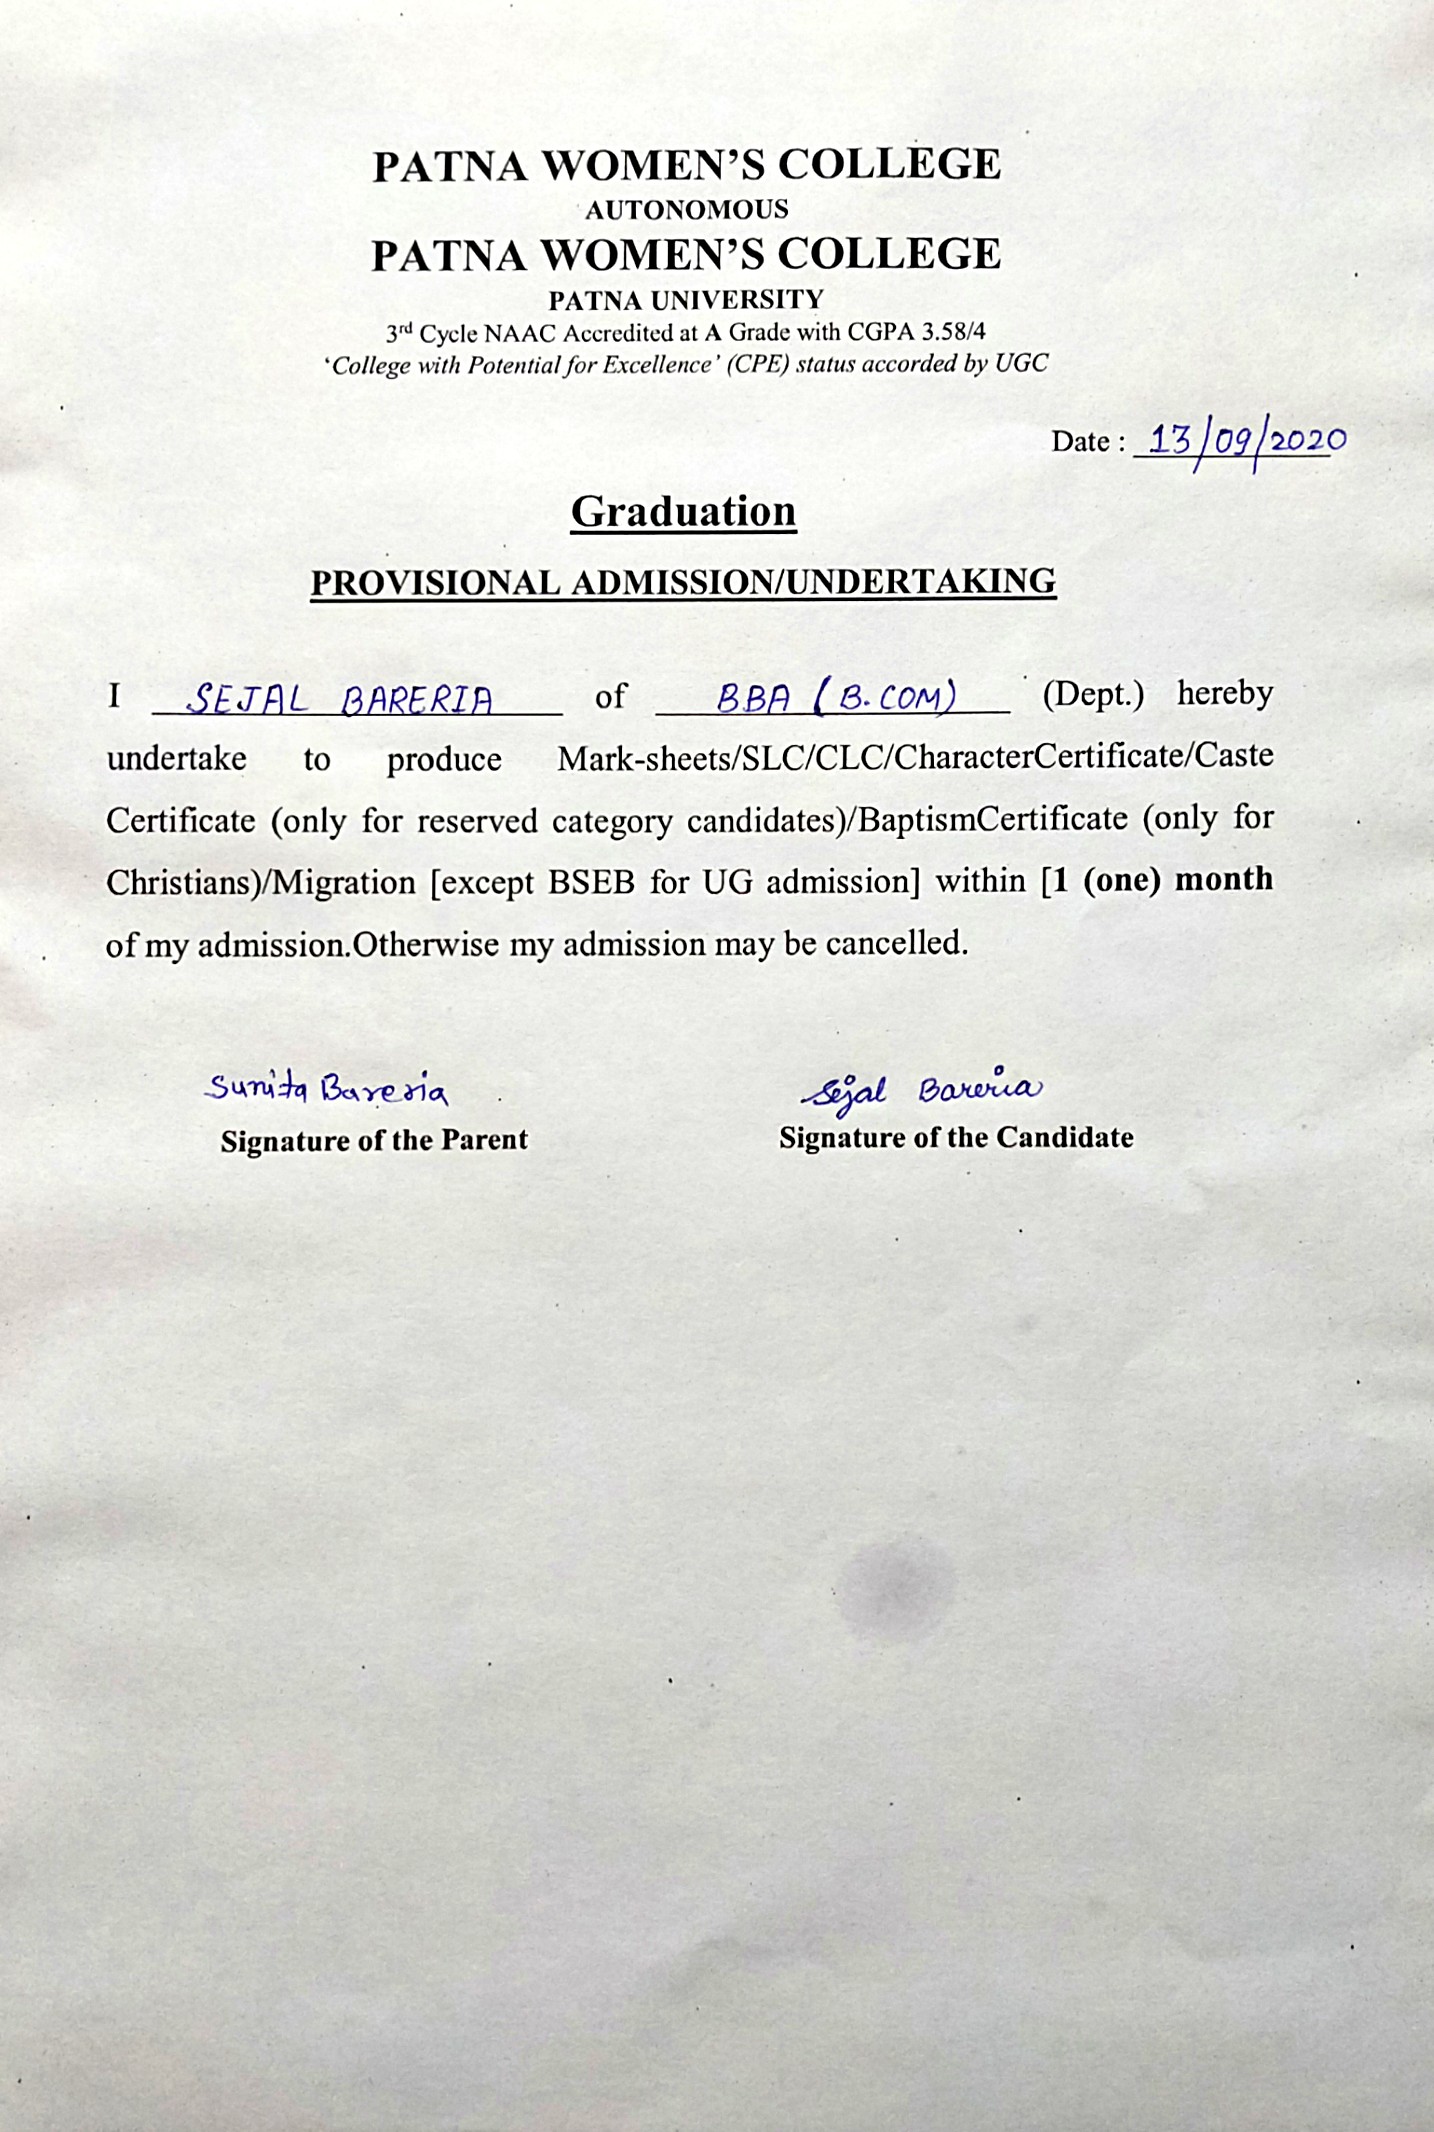 PATNA WOMEN'S COLLEGE
AUTONOMOUS
PATNA WOMEN'S COLLEGE
PATNA UNIVERSITY
3rd Cycle NAAC Accredited at A Grade with CGPA 3.58/4
'College with Potential for Excellence' (CPE) status accorded by UGC
Date : 13/09/2020
Graduation
PROVISIONAL ADMISSION/UNDERTAKING
I SEJAL BARERIA of BBA (B.COM) (Dept.) hereby
undertake to produce Mark-sheets/SLC/CLC/CharacterCertificate/Caste
Certificate (only for reserved category candidates)/BaptismCertificate (only for
Christians)/Migration [except BSEB for UG admission] within [1 (one) month
of my admission.Otherwise my admission may be cancelled.
Sunita Bareria Sejal Bareria
Signature of the Parent Signature of the Candidate